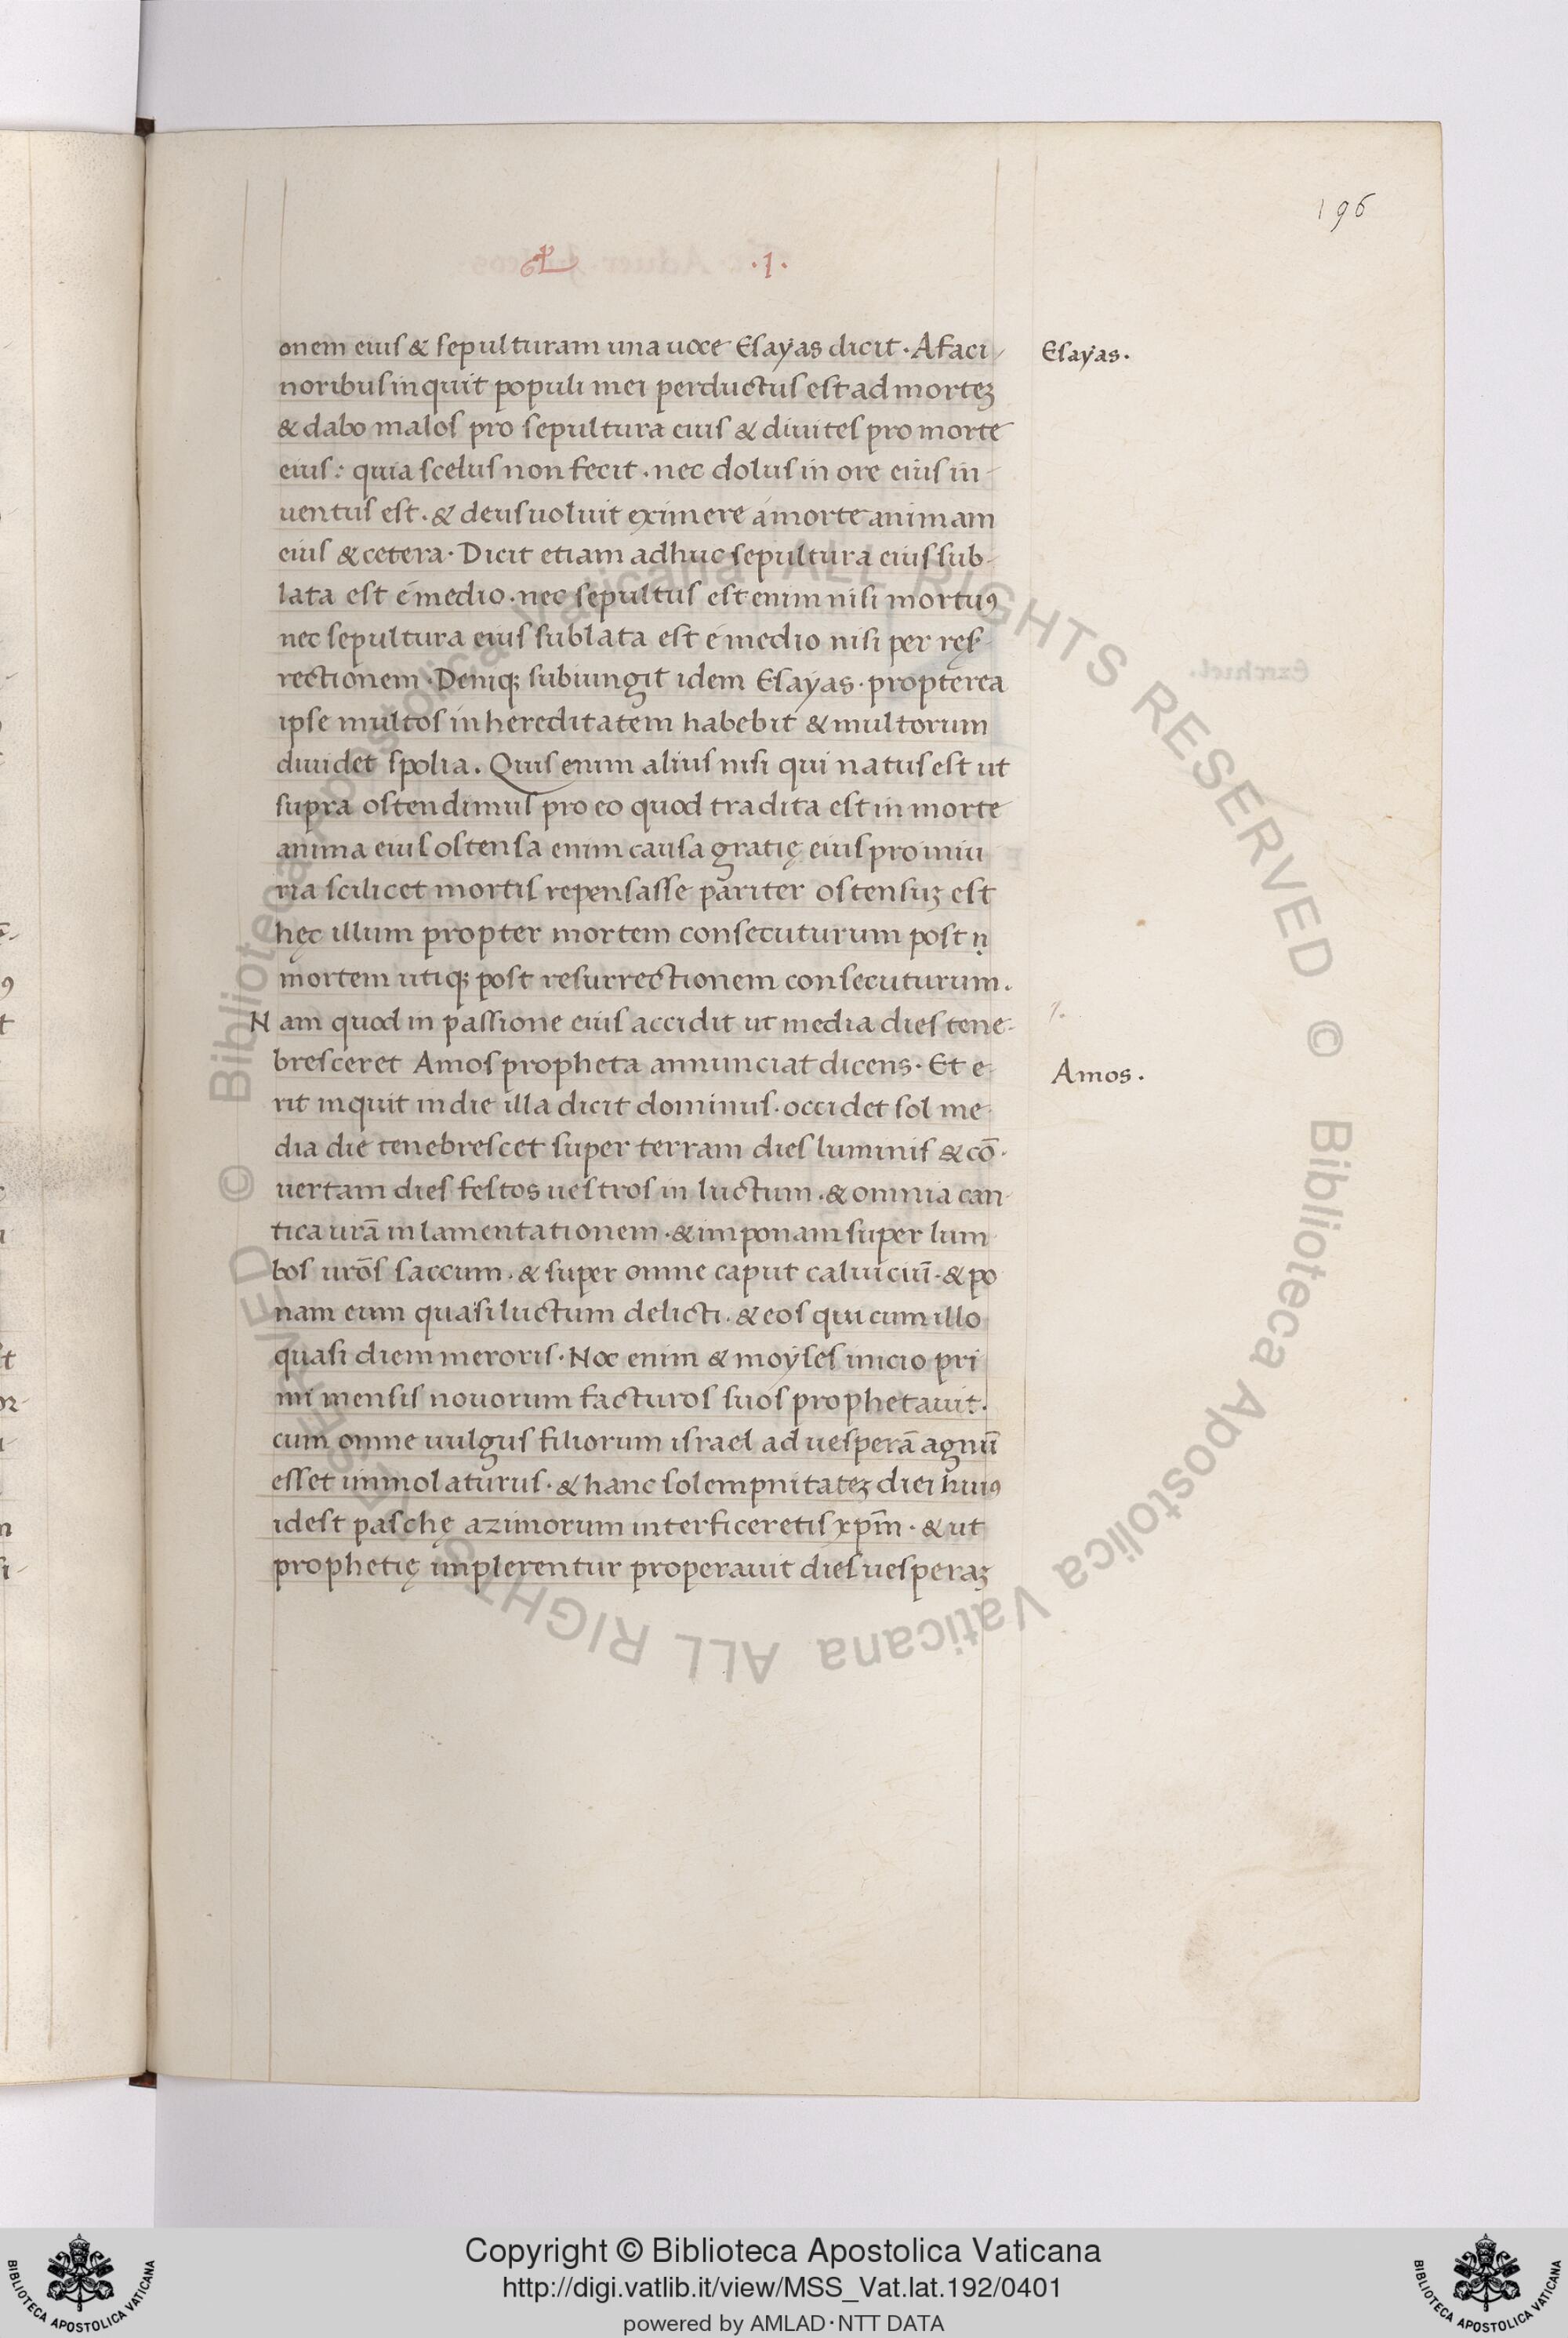 196
.1.
onem eius & sepulturam una uoce Esayas dicit. A faci-
Esayas.
noribus inquit populi mei perductus est ad morteʒ
& dabo malos pro sepultura eius & diuites pro morte
eius: quia scelus non fecit. nec dolus in ore eius in-
uentus est. & deus uoluit eximere a morte animam
eius & cetera. Dicit etiam adhuc sepultura eius sub-
lata est é medio. nec sepultus est enim nisi mortuꝰ
nec sepultura eius sublata est é medio nisi per
rectionem. Deniqꝫ subiungit idem Esayas. propterea
ipse multos in hereditatem habebit & multorum
diuidet spolia. Quis enim alius nisi qui natus est ut
supra ostendimus pro eo quod tradita est in morte
anima eius ostensa enim causa gratię eius pro iniu
ria scilicet mortis repensasse pariter ostensuʒ est
hęc illum propter mortem consecuturum post
mortem utiqꝫ post resurrectionem consecuturum.
Nam quod in passione eius accidit ut media dies tene-
bresceret Amos propheta annunciat dicens. Et e-
Amos.
rit inquit in die illa dicit dominus. occidet sol me-
dia die tenebrescet super terram dies luminis & cō-
uertam dies festos uestros in luctum. & omnia can-
tica urā in lamentationem. & imponam super lum-
bos urōs saccum. & super omne caput caluiciū. & po
nam eum quasi luctum delicti. & eos qui cum illo
quasi diem meroris. Hoc enim & moyses inicio pri
mi mensis nouorum facturos suos prophetauit.
cum omne uulgus filiorum israel ad uesperā agnū
esset immolaturus. & hanc solempnitateʒ diei huiꝰ
idest paschę azimorum interficeretis xpm̄. & ut
prophetię implerentur properauit dies uesperaʒ
© Biblioteca Apostolica Vaticana ALL RIGHTS RESERVED © Biblioteca Apostolica Vaticana ALL RIGHTS RESERVED
Copyright © Biblioteca Apostolica Vaticana
http://digi.vatlib.it/view/MSS_Vat.lat.192/0401
powered by AMLAD•NTT DATA
BIBLIOTECA APOSTOLICA VATICANA
BIBLIOTECA APOSTOLICA VATICANA